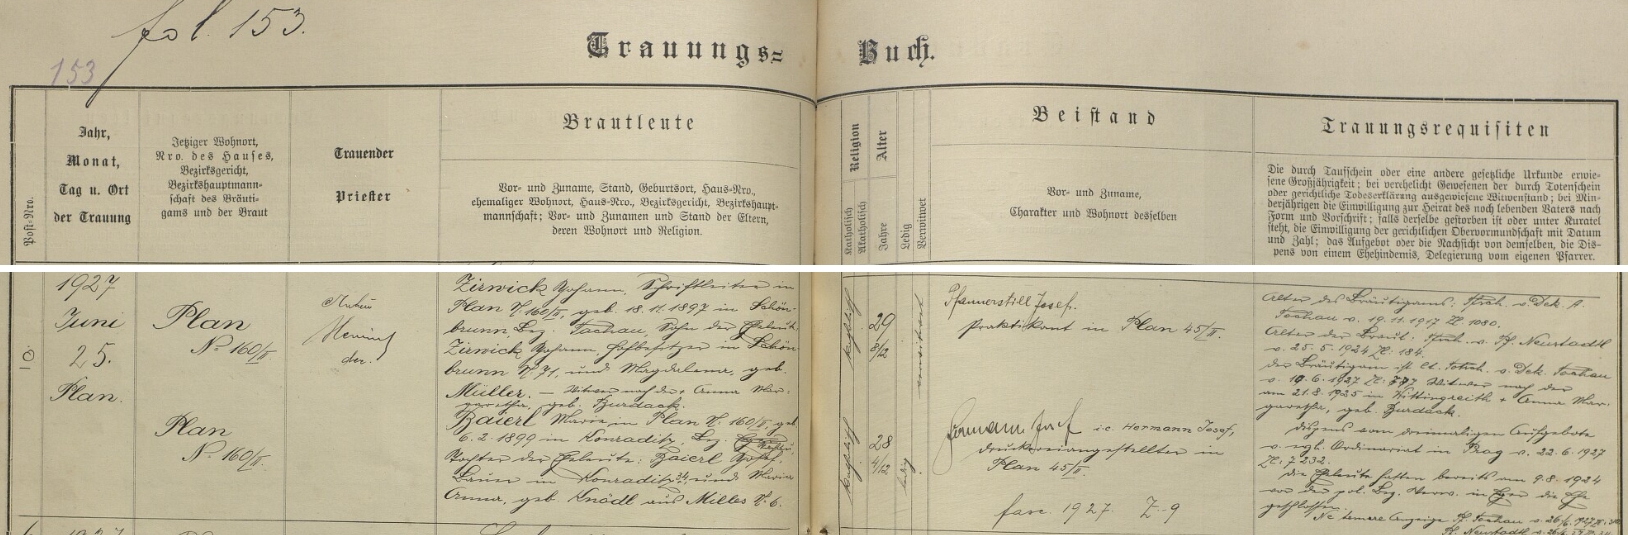 fol. 153.
153
Trauungs=Buch.
Post-Nro.
Jahr,
Monat,
Tag u. Ort
der Trauung
Jetziger Wohnort,
Nro. des Hauses,
Bezirksgericht,
Bezirkshauptmann-
schaft des Bräuti-
gams und der Braut
Trauender
Priester
Brautleute
Vor- und Zuname, Stand, Geburtsort, Haus-Nro.,
ehemaliger Wohnort, Haus-Nro., Bezirksgericht, Bezirkshaupt-
mannschaft; Vor- und Zunamen und Stand der Eltern,
deren Wohnort und Religion.
Religion
Katholisch
Akatholisch
Alter
Jahre
Ledig
Verwitwet
Beistand
Vor- und Zuname,
Charakter und Wohnort desselben
Trauungsrequisiten
Die durch Taufschein oder eine andere gesetzliche Urkunde erwie-
sene Großjährigkeit; bei verehelicht Gewesenen der durch Totenschein
oder gerichtliche Todeserklärung ausgewiesene Witwenstand; bei Min-
derjährigen die Einwilligung zur Heirat des noch lebenden Vaters nach
Form und Vorschrift; falls derselbe gestorben ist oder unter Kuratel
steht, die Einwilligung der gerichtlichen Obervormundschaft mit Datum
und Zahl; das Aufgebot oder die Nachsicht von demselben, die Dis-
pens von einem Ehehindernis, Delegierung vom eigenen Pfarrer.
10.
1927
Juni
25.
Plan.
Plan
No 160/II
Plan
No 160/II.
Zirwick Johann, Schriftleiter in
Plan N. 160/II, geb. 18.11.1897 in Schön-
brunn, Bez. Tachau, Sohn der Eheleute
Zirwick Johann, Hofbesitzer in Schön-
brunn N. 71, und Magdalena, geb.
Müller. — Witwer nach der + Anna Mar-
garetha, geb. Burdack.
Baierl Maria in Plan N. 160/II, geb.
6.2.1899 in Konraditz, Bez.
Tochter der Eheleute: Baierl Josef,
Bauer in Konraditz und Maria
Anna, geb Knödl aus Milles N. 6.
katholisch
29
8/12
verwitwet
katholisch
28
4/12
ledig
Pfannerstill Josef.
Praktikant in Plan 45/II.
Hermann Josef i.e. Hermann Josef,
Druckereiangestellter in
Plan 45/II.
fasc. 1927. Z. 9
Alter des Bräutigams: v. Dek. A.
Tachau v. 19.11.1917 Zl. 1080.
Alter der Braut: v. Pf. Neustadtl
v. 25.5.1924 Zl. 184.
der Bräutigam ist lt. v. Dek. Tachau
v. 10.6.1927 Zl. 777 Witwer nach der
am 21.8.1925 in + Anna Mar-
garetha, geb. Burdack.
Dispens vom dreimaligen Aufgebote
v. Ordinariat in Prag v. 22.6.1927
Zl. 7232.
Die Eheleute hatten bereits am 9.8.1924
vor der pol. Bez. Verw. in Eger die Ehe
geschlossen.
Ne temere Anzeige Pf. Tachau v. 26/6. 1927
Pf. Neustadtl v.
1927